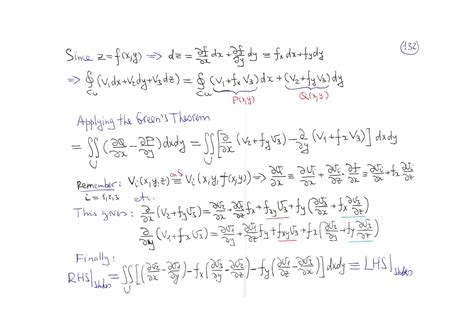 Since z=f(x,y) ⇒ dz = ∂f/∂x dx + ∂f/∂y dy ≡ f_x dx + f_y dy
(132)
⇒ ∮_{C_u} (V₁dx+V₂dy+V₃dz) = ∮_{C_u} (V₁+f_x V₃)dx + (V₂+f_y V₃)dy
P(x,y) Q(x,y)
Applying the Green's Theorem
= ∬_U (∂Q/∂x − ∂P/∂y) dxdy = ∬_U [∂/∂x (V₂+f_y V₃) − ∂/∂y (V₁+f_x V₃)] dxdy
on S
Remember: V_i(x,y,z) ≡ V_i(x,y,f(x,y)) ⇒ ∂V_i/∂x ≡ ∂V_i/∂x + ∂V_i/∂z · ∂f/∂x ≡ ∂V_i/∂x + f_x ∂V_i/∂z
i=1,2,3 etc.
This gives: ∂/∂x (V₂+f_y V₃) = ∂V₂/∂x + ∂V₂/∂z f_x + f_xy V₃ + f_y (∂V₃/∂x + f_x ∂V₃/∂z)
∂/∂y (V₁+f_x V₃) = ∂V₁/∂y + ∂V₁/∂z f_y + f_xy V₃ + f_x (∂V₃/∂y + f_y ∂V₃/∂z)
Finally:
RHS|_{Stokes} = ∬_U [(∂V₂/∂x − ∂V₁/∂y) − f_x (∂V₃/∂y − ∂V₂/∂z) − f_y (∂V₁/∂z − ∂V₃/∂x)] dxdy ≡ LHS|_{Stokes}